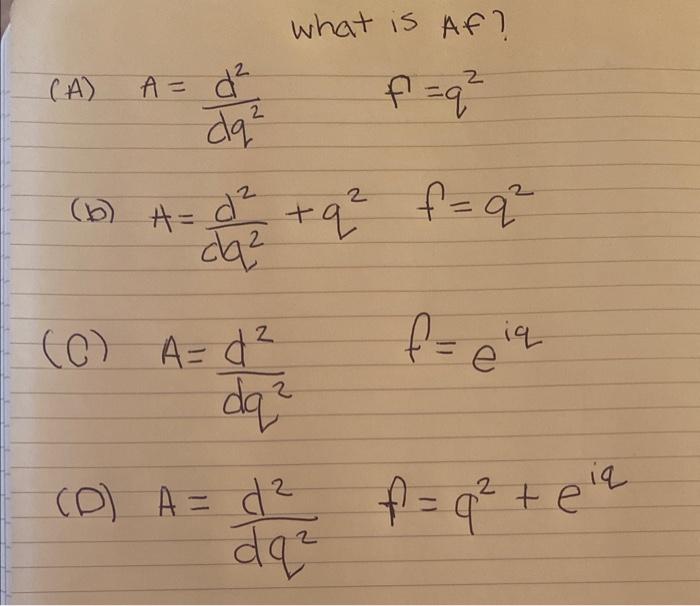 what is Af?
(A) A = d²/dq² f = q²
(b) A = d²/dq² + q² f = q²
(C) A = d²/dq² f = e^{iq}
(D) A = d²/dq² f = q² + e^{iq}